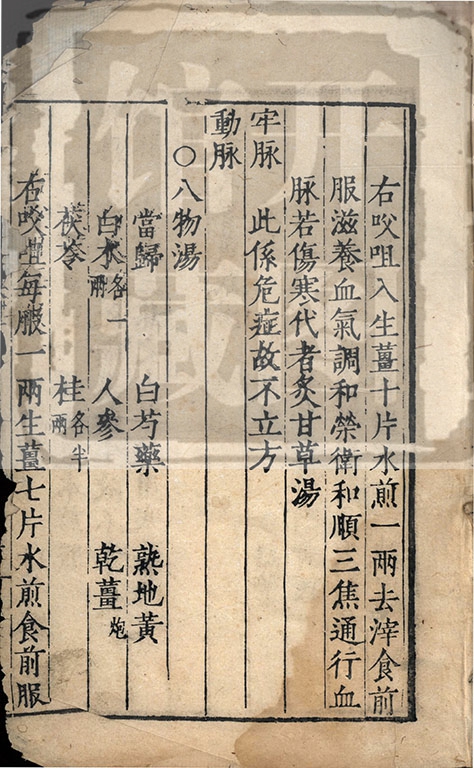 右㕮咀入生薑十片水煎一兩去滓食前
服滋養血氣調和榮衛和順三焦通行血
脉若傷寒代者炙甘草湯
牢脉 此係危症故不立方
動脉
○八物湯
當歸 白芍藥 熟地黃
白朮各一兩 人參 乾薑炮
茯苓 桂各半兩
右㕮咀每服一兩生薑七片水煎食前服